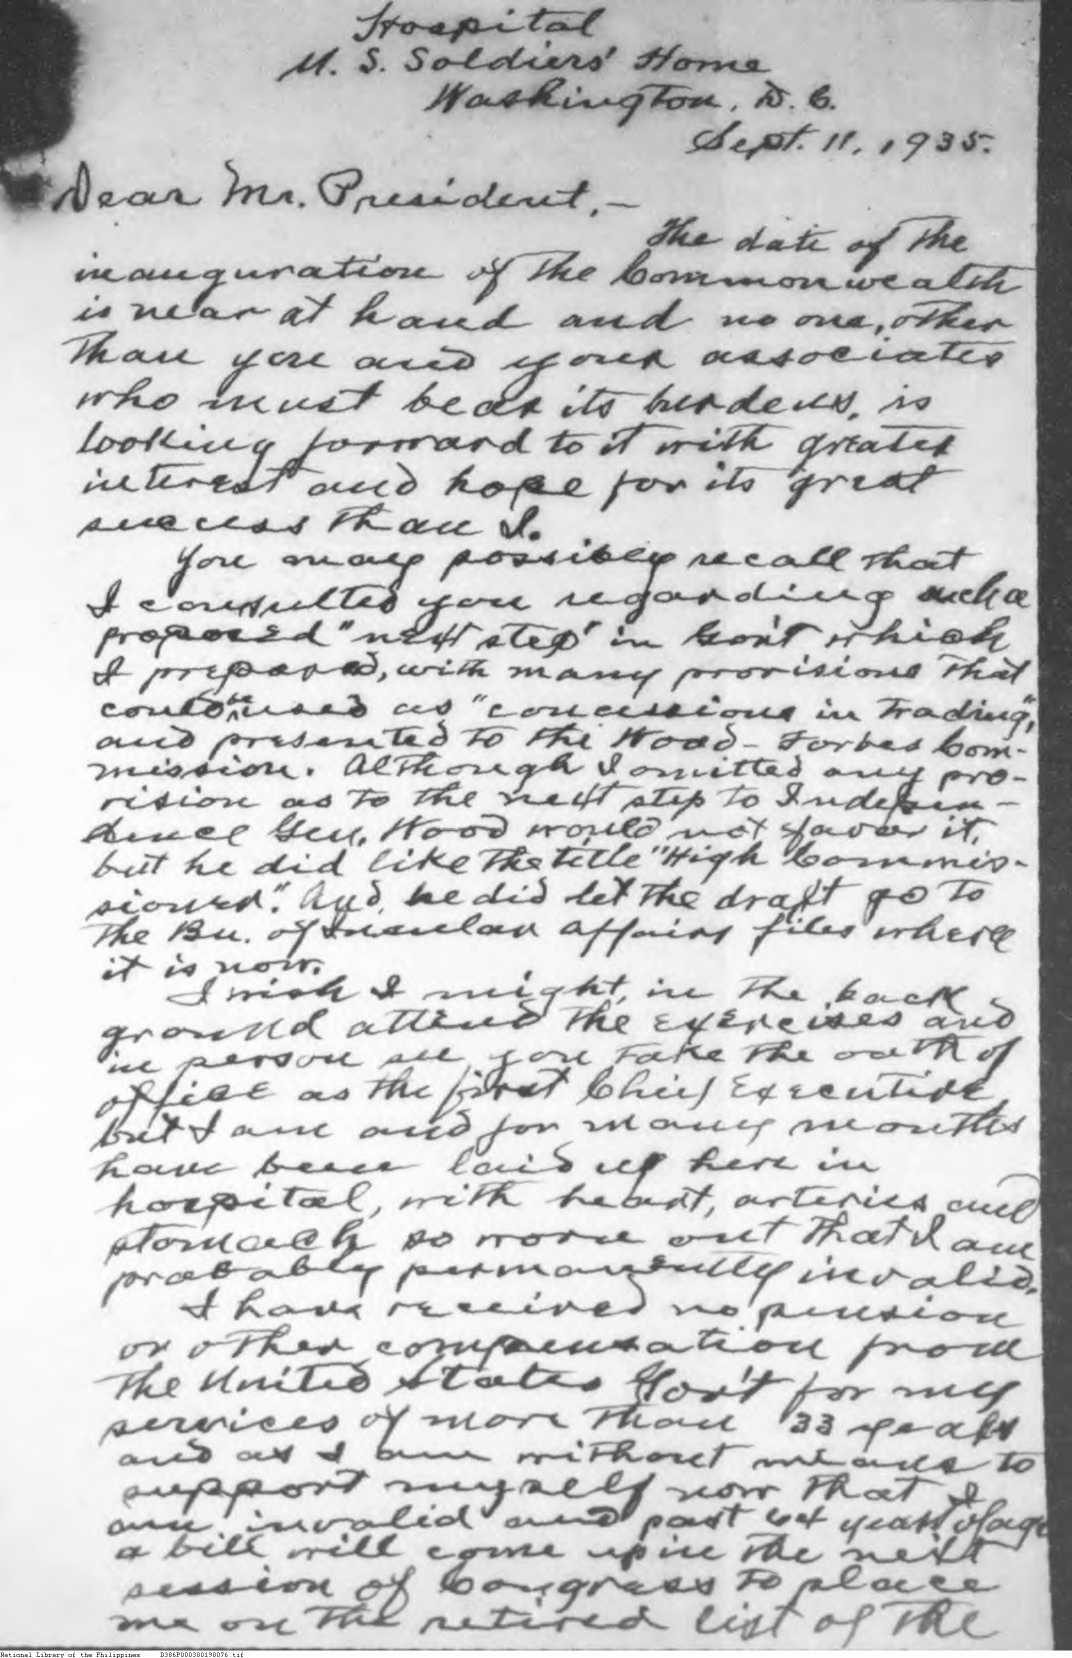 Hospital
U. S. Soldiers' Home
Washington, D. C.
Sept. 11, 1935.
Dear Mr. President,—
The date of the
inauguration of the Commonwealth
is near at hand and no one, other
than you and your associates
who must bear its burdens, is
looking forward to it with greater
interest and hope for its great
success than I.
You may possibly recall that
I consulted you regarding such a
proposed "next step" in Gov't which
I prepared, with many provisions that
could be used as "concessions in trading",
and presented to the Wood-Forbes Com-
mission. Although I omitted any pro-
vision as to the next step to Indepen-
dence Gen. Wood would not favor it,
but he did like the title "High Commis-
sioner". And he did let the draft go to
the Bu. of Insular Affairs files where
it is now.
I wish I might, in the back
ground attend the exercises and
in person see you take the oath of
office as the first Chief Executive
but I am and for many months
have been laid up here in
hospital, with heart, arteries and
stomach so worn out that I am
probably permanently invalid.
I have received no pension
or other compensation from
the United States Gov't for my
services of more than 33 years
and as I am without means to
support myself now that I
am invalid and past 64 years of age
a bill will come up in the next
session of Congress to place
me on the retired list of the
National Library of the Philippines D386P000380198076.tif